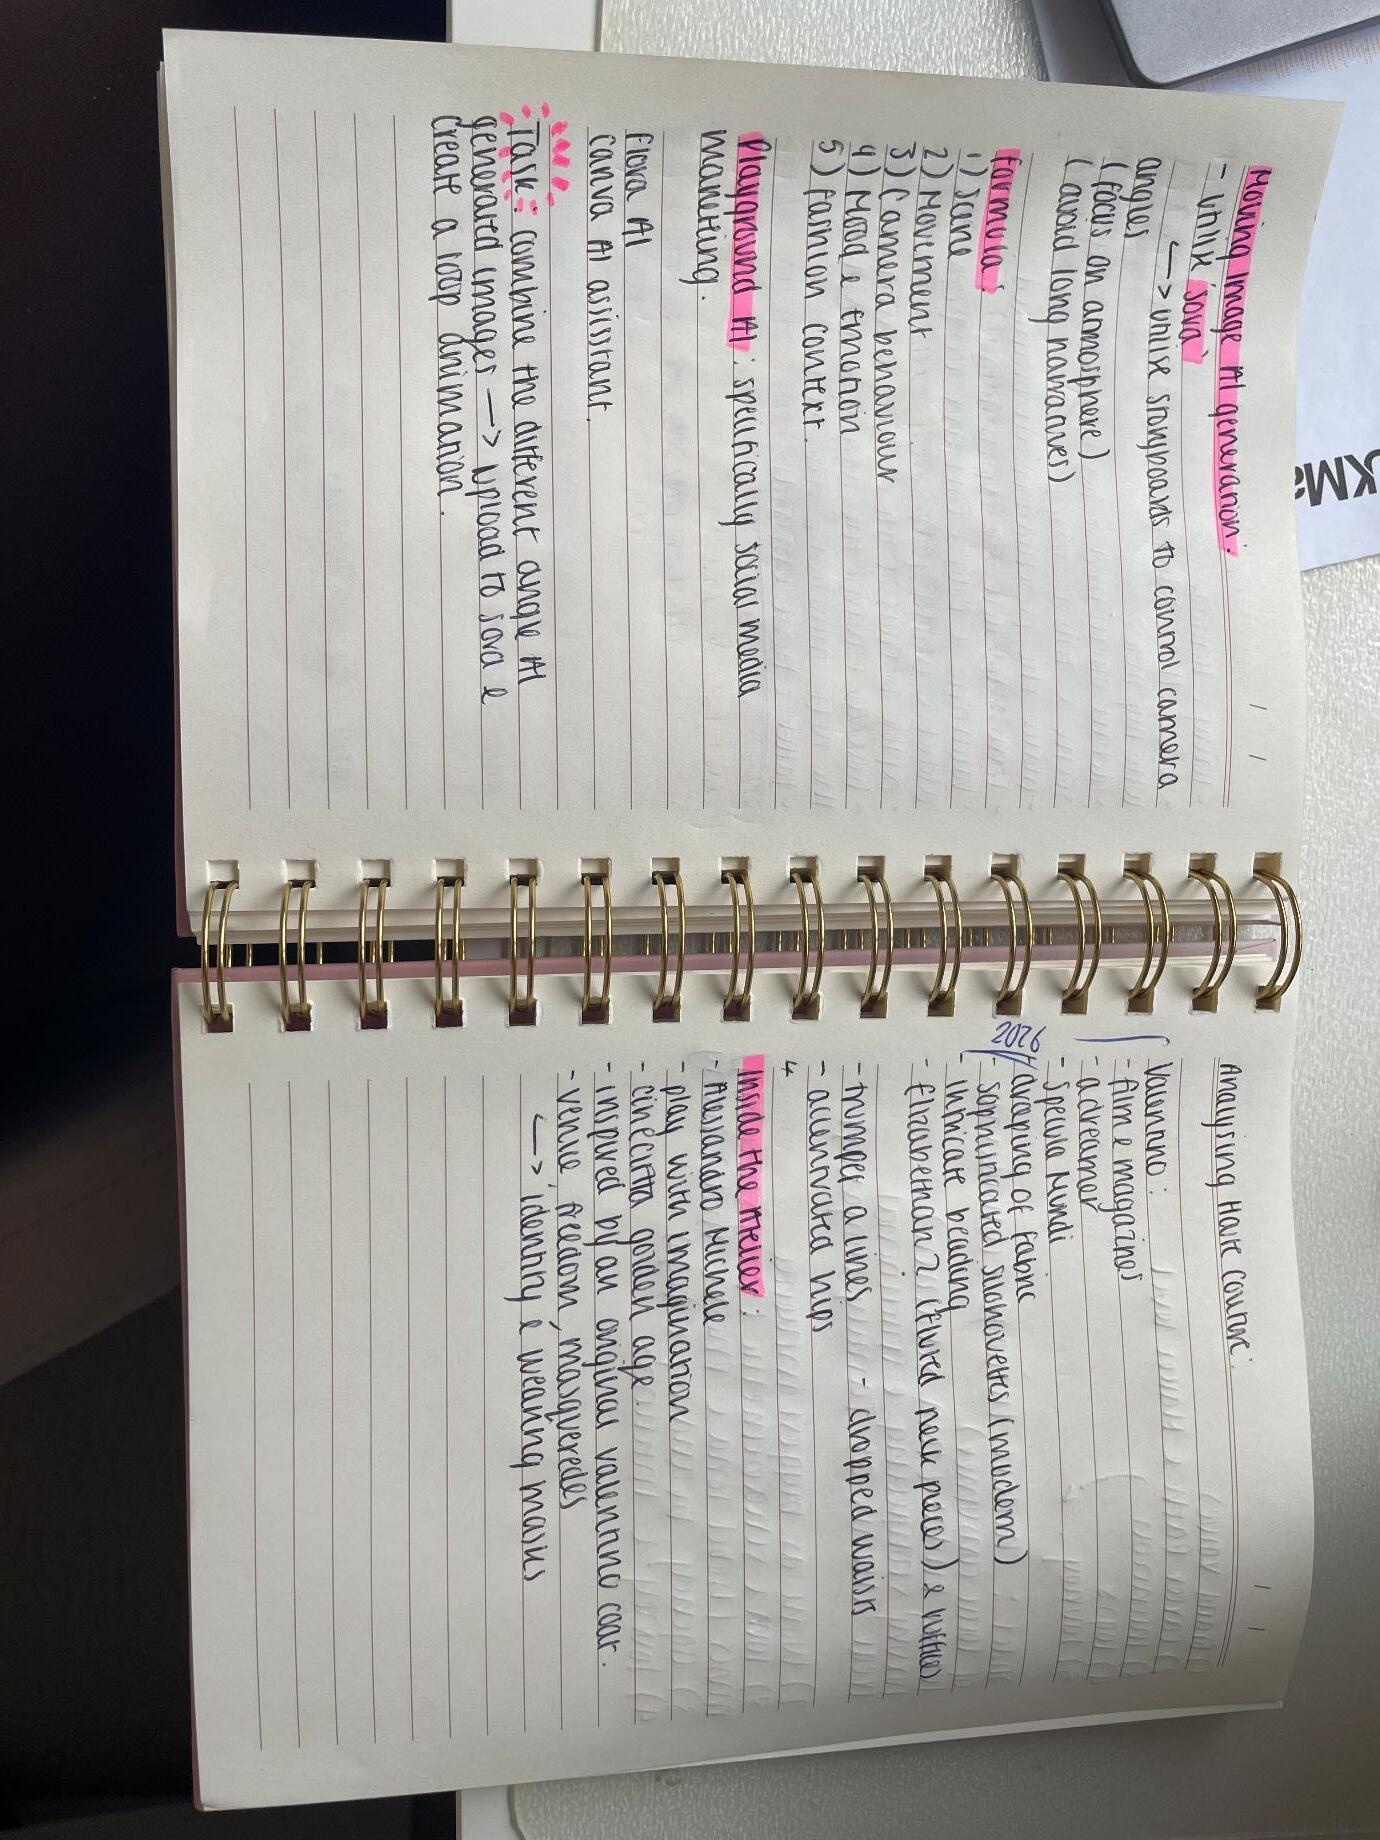 Moving image AI generation:
- Utilix 'Sora'
↳ utilise storyboards to control camera
angles
(focus on atmosphere)
(avoid long narratives)
Formula:
1) Scene
2) Movement
3) Camera behaviour
4) Mood & Emotion
5) Fashion context.
Playground AI: specifically social media
marketing.
Flora AI
Canva AI assistant.
Task: combine the different angle AI
generated images → upload to Sora &
create a loop animation.
Analysing Haute Couture:
Valentino:
- film & magazines
- a dreamer
- Specula Mundi
2026
- draping of fabric
- sophisticated silohouettes (modern)
- intricate beading
- Elizabethan? (fluted neck pieces) & ruffles
- trumpet a lines - dropped waists
- accentuated hips
Inside the Atelier:
- Alessandro Michele
- play with imagination
- cinecitta golden age
- inspired by an original valentino coat.
- venue, freedom, masqueredes
↳ identity & wearing masks